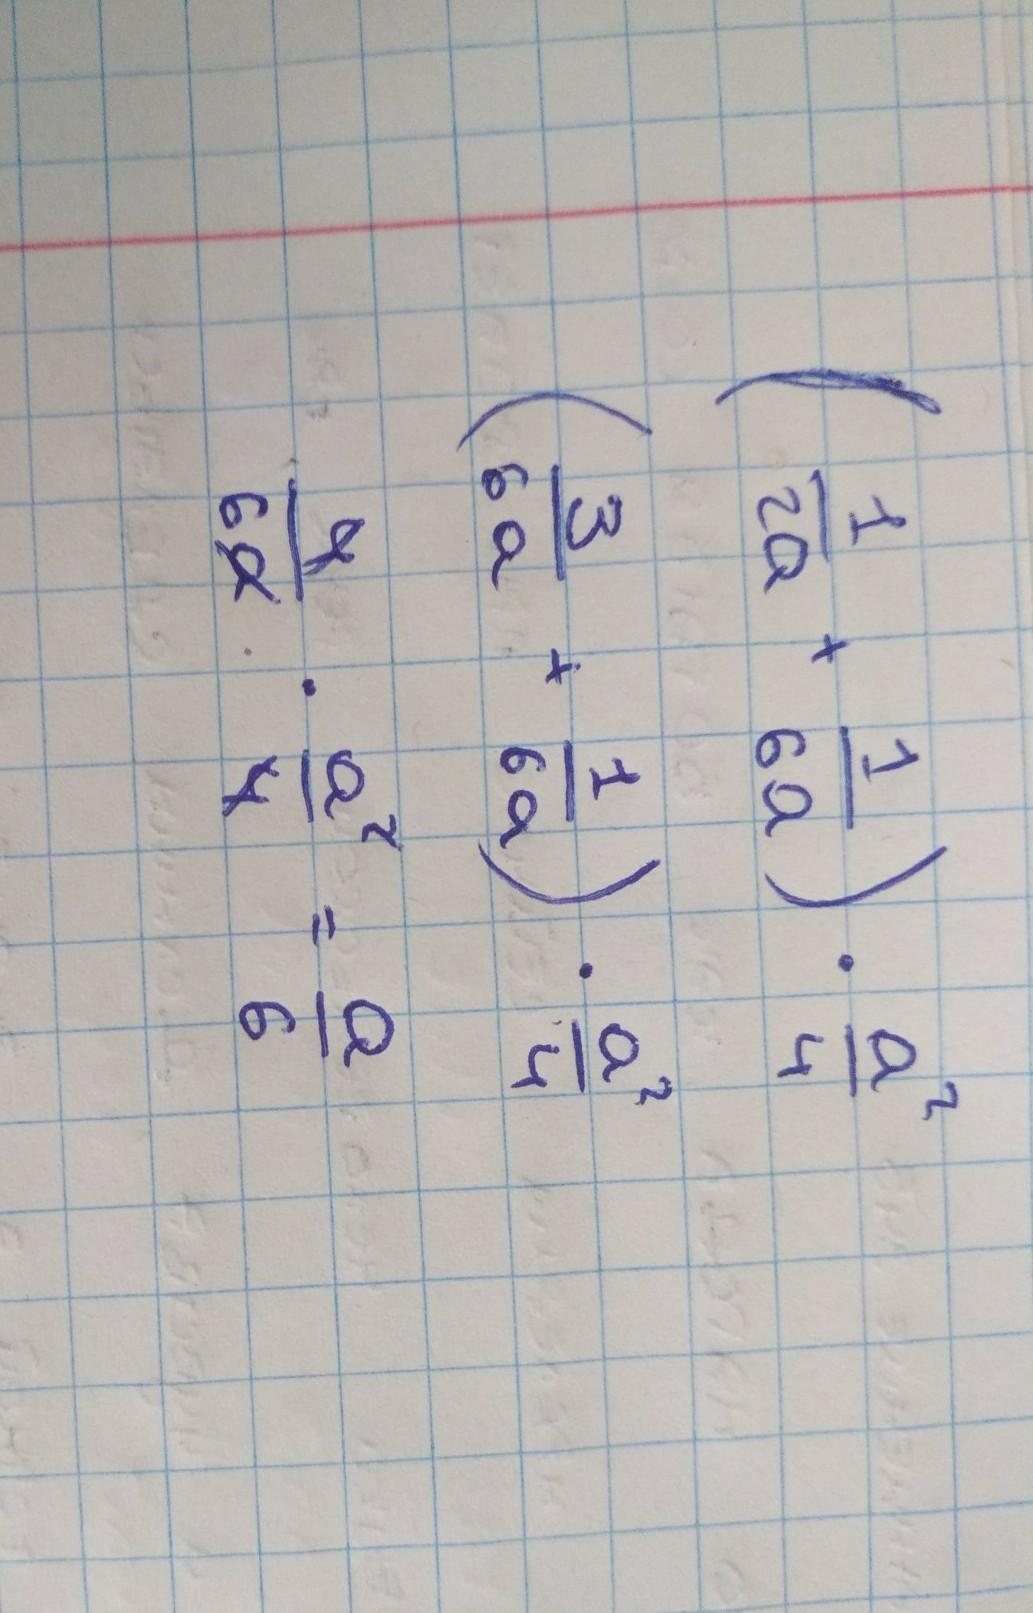 (1/2a + 1/6a) · a²/4
(3/6a + 1/6a) · a²/4
4/6a · a²/4 = a/6